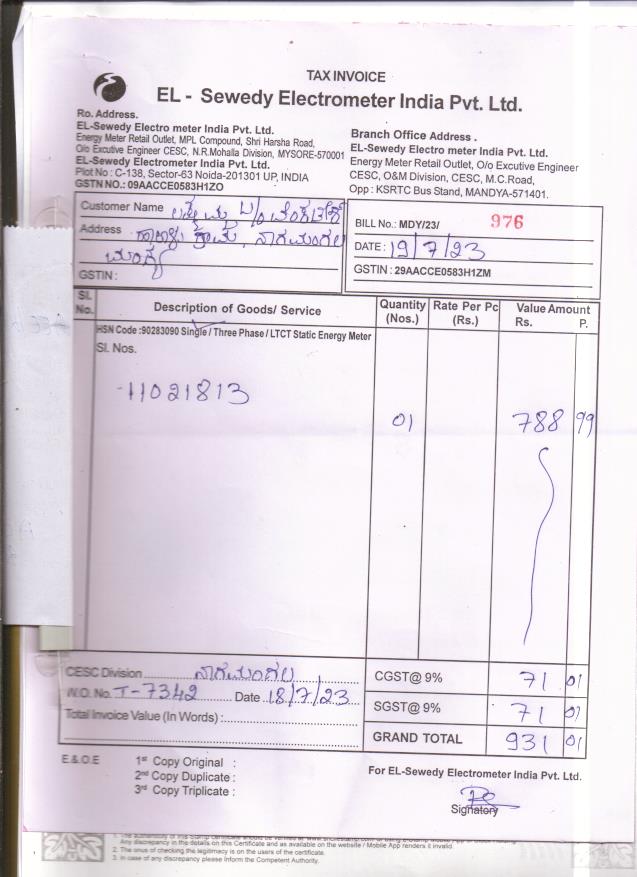 TAX INVOICE
EL - Sewedy Electrometer India Pvt. Ltd.
Ro. Address.
EL-Sewedy Electro meter India Pvt. Ltd.
Energy Meter Retail Outlet, MPL Compound, Shri Harsha Road,
O/o Excutive Engineer CESC, N.R.Mohalla Division, MYSORE-570001
EL-Sewedy Electrometer India Pvt. Ltd.
Plot No : C-138, Sector-63 Noida-201301 UP, INDIA
GSTN NO.: 09AACCE0583H1ZO
Branch Office Address .
EL-Sewedy Electro meter India Pvt. Ltd.
Energy Meter Retail Outlet, O/o Excutive Engineer
CESC, O&M Division, CESC, M.C.Road,
Opp : KSRTC Bus Stand, MANDYA-571401.
Customer Name W/o
Address ಗ್ರಾಮ, ನಾಗಮಂಗಲ
ಮಂಡ್ಯ
GSTIN :
BILL No.: MDY/23/ 976
DATE : 19/7/23
GSTIN : 29AACCE0583H1ZM
Sl. No. Description of Goods/ Service Quantity (Nos.) Rate Per Pc (Rs.) Value Amount Rs. P.
HSN Code :90283090 Single / Three Phase / LTCT Static Energy Meter
Sl. Nos.
11021813
01 788 99
CESC Division ನಾಗಮಂಗಲ
W.O. No. T-7342 Date 18/7/23
Total Invoice Value (In Words) :
CGST@ 9% 71 01
SGST@ 9% 71 01
GRAND TOTAL 931 01
E & O E
1st Copy Original :
2nd Copy Duplicate :
3rd Copy Triplicate :
For EL-Sewedy Electrometer India Pvt. Ltd.
Signatory
Any discrepancy in the details on this Certificate and as available on the website / Mobile App renders it invalid.
2. The onus of checking the legitimacy is on the users of the certificate.
3. In case of any discrepancy please inform the Competent Authority.